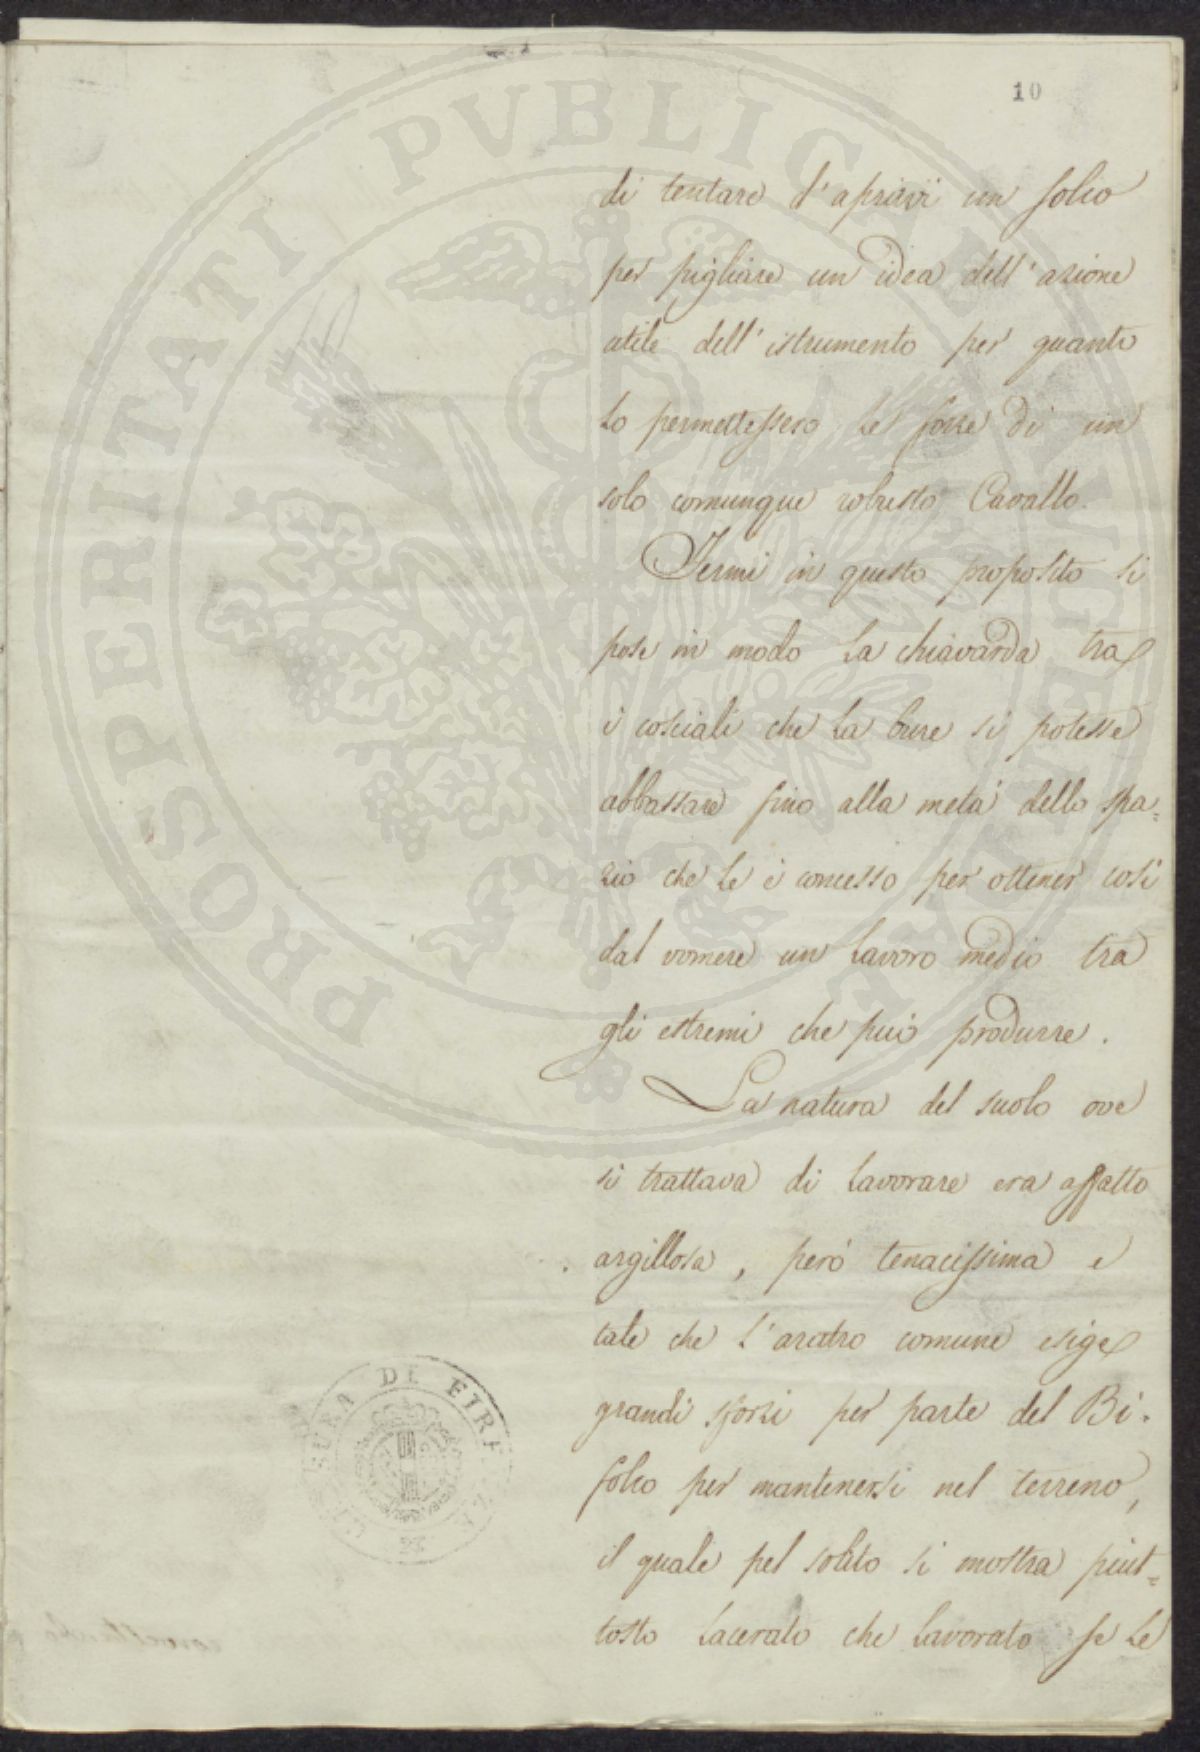 10
di tentare d'aprirvi un solco
per pigliare un idea dell'azione
utile dell'istrumento per quanto
lo permettessero le forze di un
solo comunque robusto Cavallo.
Fermi in questo proposito si
pose in modo la chiavarda tra
i cosciali che la bure si potesse
abbassare fino alla metà dello spa=
zio che le è concesso per ottener così
dal vomere un lavoro medio tra
gli estremi che può produrre.
La natura del suolo ove
si trattava di lavorare era affatto
argillosa, però tenacissima e
tale che l'aratro comune esige
grandi sforzi per parte del Bi=
folco per mantenersi nel terreno,
il quale pel solito si mostra piut=
tosto lacerato che lavorato se le
PROSPERITATI PVBLICAE AVGENDAE
DI FIRENZA